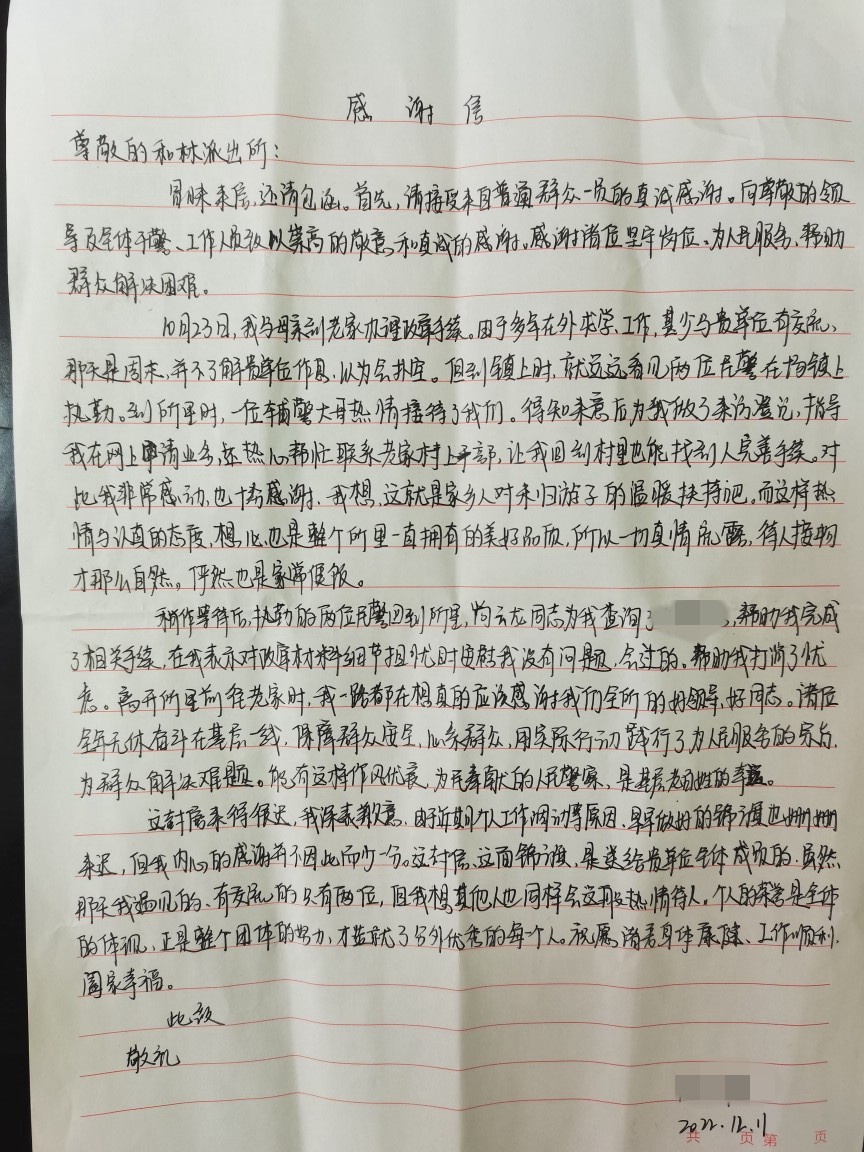 感谢信
尊敬的和林派出所：
冒昧来信，还请包涵。首先，请接受来自普通群众一员的真诚感谢。向尊敬的领
导及全体干警、工作人员致以崇高的敬意和真诚的感谢。感谢诸位坚守岗位，为人民服务，帮助
群众解决困难。
10月23日，我与母亲到老家办理政审手续。由于多年在外求学、工作，甚少与贵单位有交流，
那天是周末，并不了解贵单位作息，以为会扑空。但到镇上时，就远远看见两位民警在场镇上
执勤。到所里时，一位辅警大哥热情接待了我们。得知来意后为我做了来访登记，指导
我在网上申请业务，还热心帮忙联系老家村上干部，让我回到村里也能找到人完善手续。对
此我非常感动，也十分感谢，我想，这就是家乡人对未归游子的温暖扶持吧。而这样热
情与认真的态度，想必也是整个所里一直拥有的美好品质，所以一切真情流露，待人接物
才那么自然。俨然也是家常便饭。
稍作等待后，执勤的两位民警回到所里，云龙同志为我查询了，帮助我完成
了相关手续，在我表示对政审材料细节担忧时安慰我没有问题，会过的。帮助我打消了忧
虑。离开所里前往老家时，我一路都在想真的应该感谢我们全所的好领导、好同志。诸位
全年无休奋斗在基层一线，保障群众安全，心系群众，用实际行动践行了为人民服务的宗旨，
为群众解决难题。能有这样作风优良，为民奉献的人民警察，是基层老百姓的幸运。
这封信来得很迟，我深表歉意，由于近期个人工作调动等原因，早早做好的锦旗也姗姗
来迟，但我内心的感谢并不因此而少一分。这封信、这面锦旗，是送给贵单位全体成员的，虽然
那天我遇见的、有交流的只有两位，但我想其他人也同样会这般热情待人。个人的荣誉是全体
的体现，正是整个团体的努力，才造就了分外优秀的每个人。祝愿诸君身体康健、工作顺利，
阖家幸福。
此致
敬礼
2022.12.11
共 页 第 页